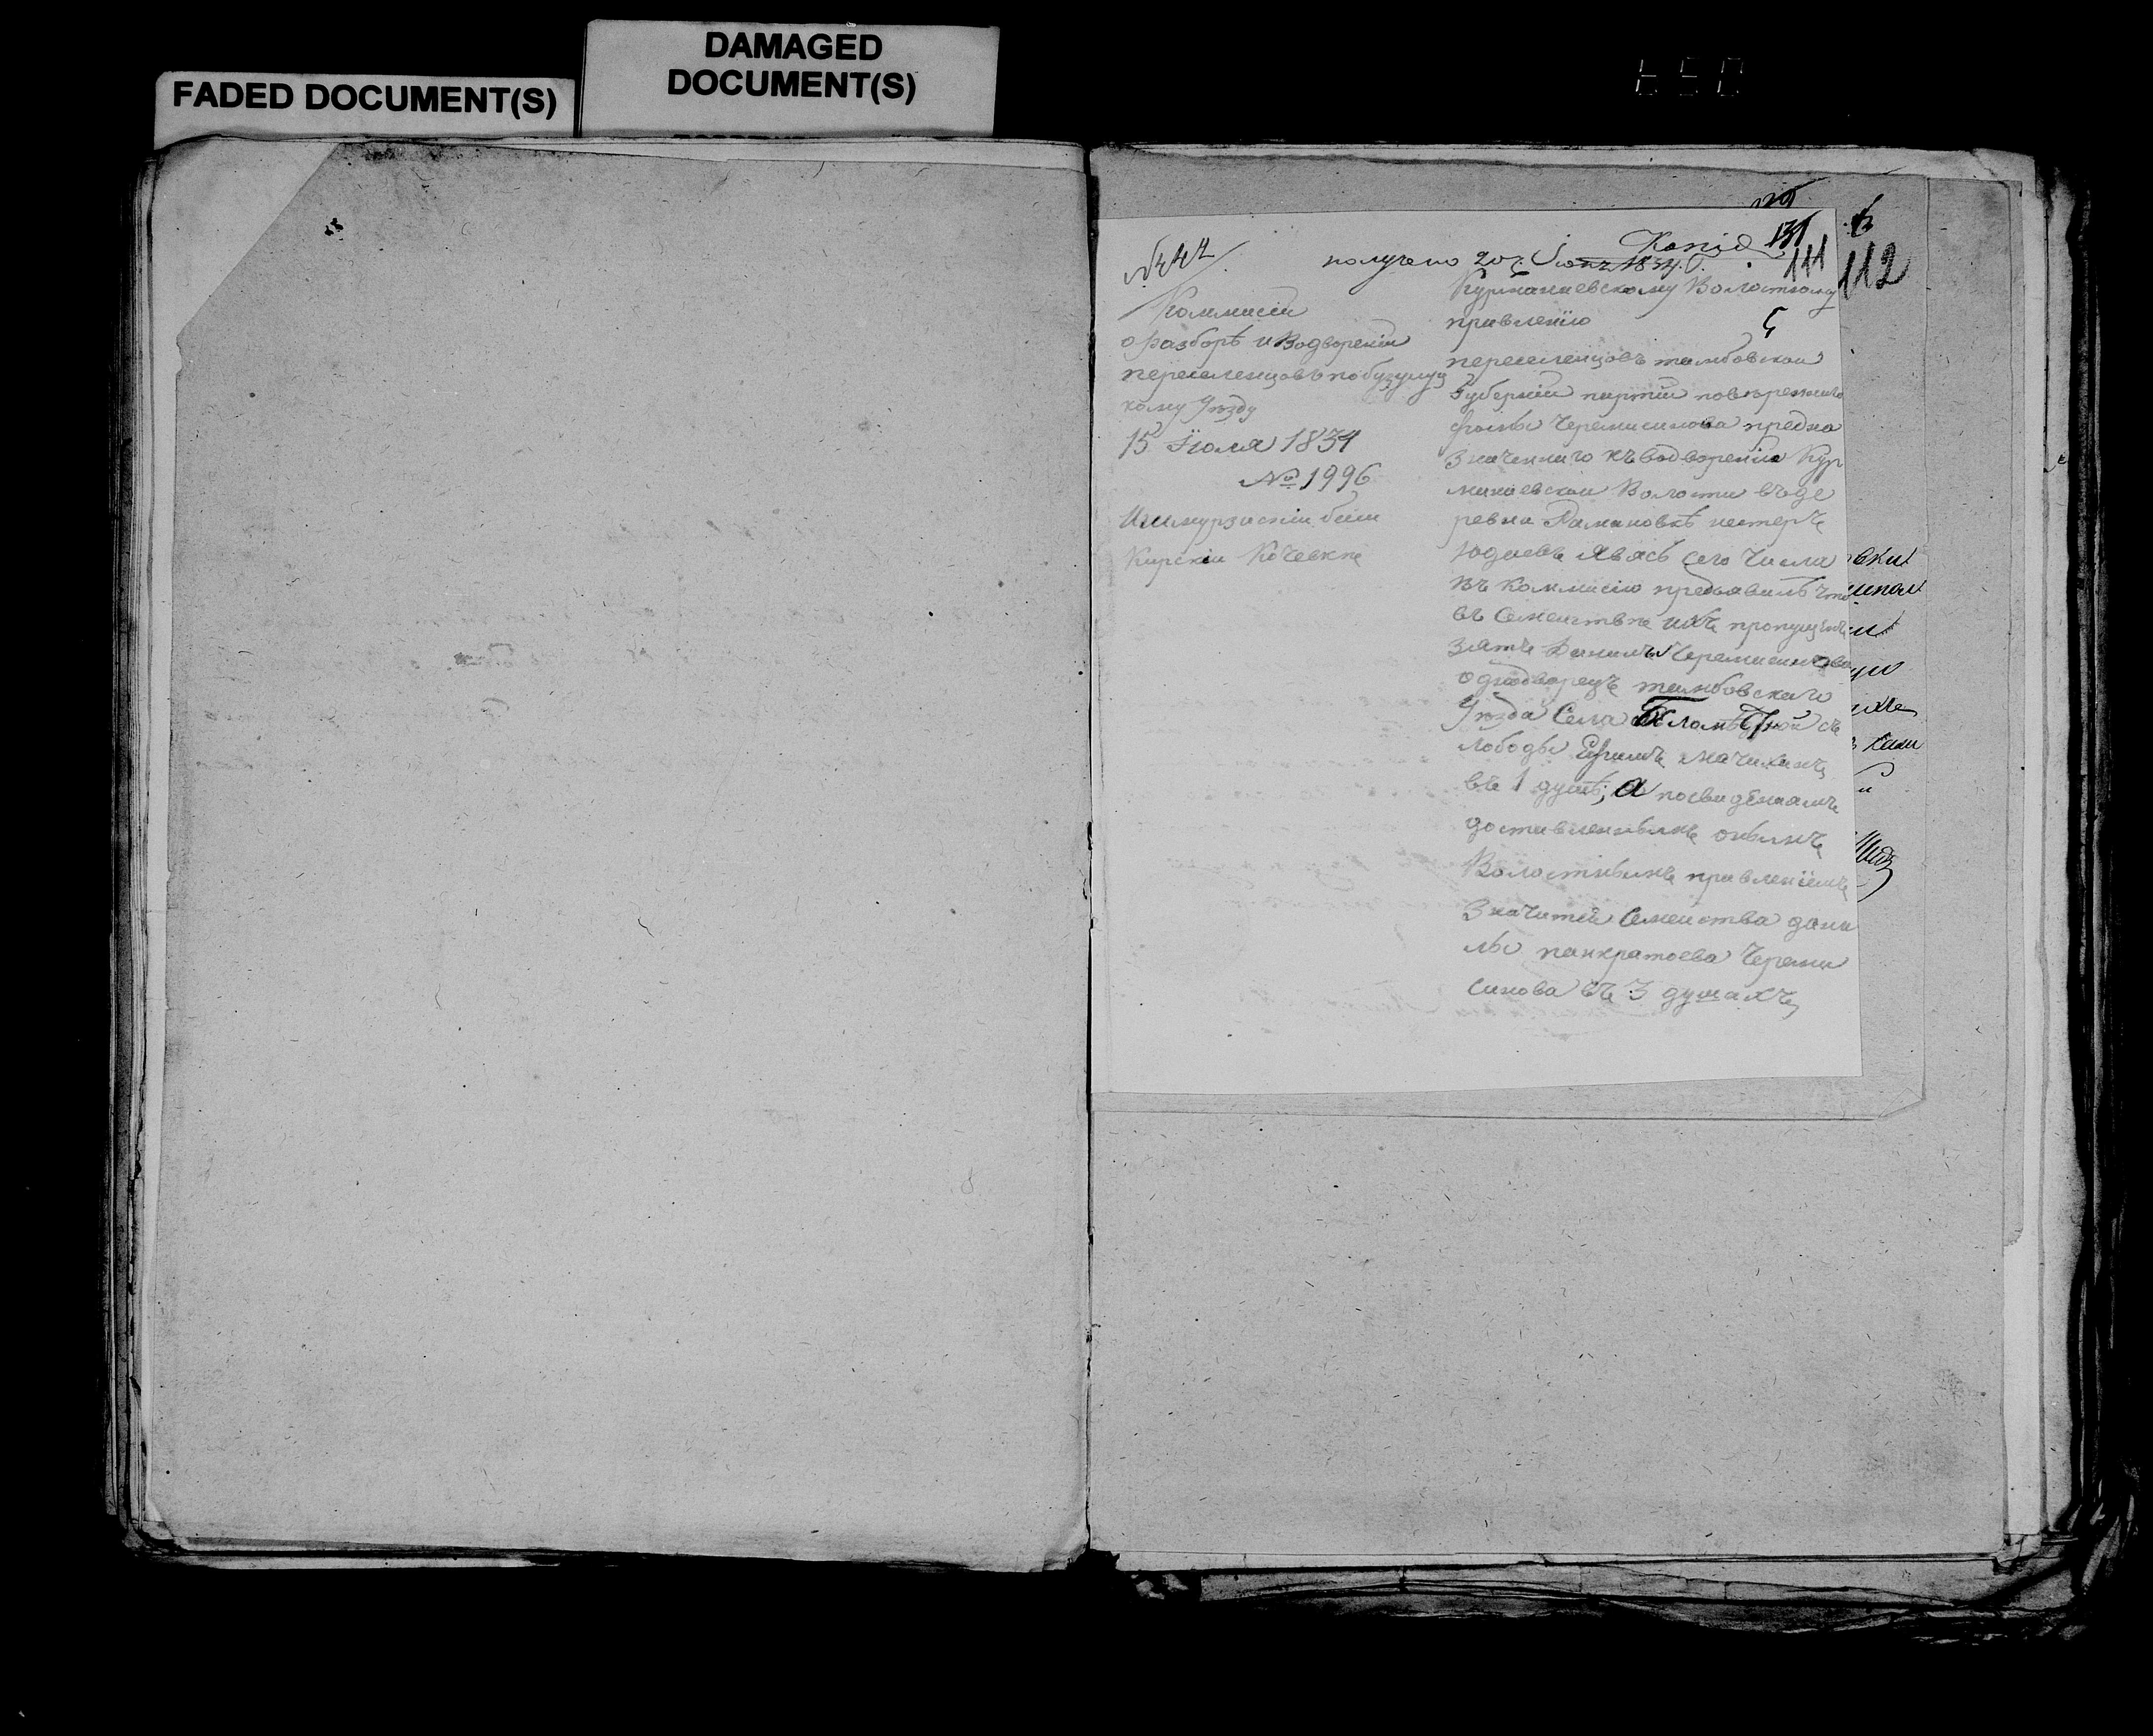 FADED DOCUMENT(S)
DAMAGED
DOCUMENT(S)
131
111
112
Копия
получено 20г. 1834.
Коммисiи
о разборѣ и Водворенiи
переселенцовъ по бузулуц
кому уѣзду
15 Iюля 1834
№ 1996
Кирскiи Кочевкѣ
Курманаевскому Волостному
правленiю
переселенцовъ тамбовской
Губернiи партiи повѣреннаго
Черемисинова предна
значеннаго къ водворенiю Кур
манаевскои Волости въ де
ревна Рамановкѣ нестеръ
Юдаевъ явясь сего Числа
въ Коммисiю предъявилъ что
въ Семеиствѣ ихъ пропущенъ
зять Данилы Черемисинова
однодворецъ тамбовскаго
Уѣзда Села
лободы Ефимъ мачихинъ
въ 1 душѣ; а по сви денiамъ
доставленнымъ онымъ
Волостнымъ правленiемъ
Значитси Семеиства дани
лы панкратоева Череми
синова въ 3 душахъ